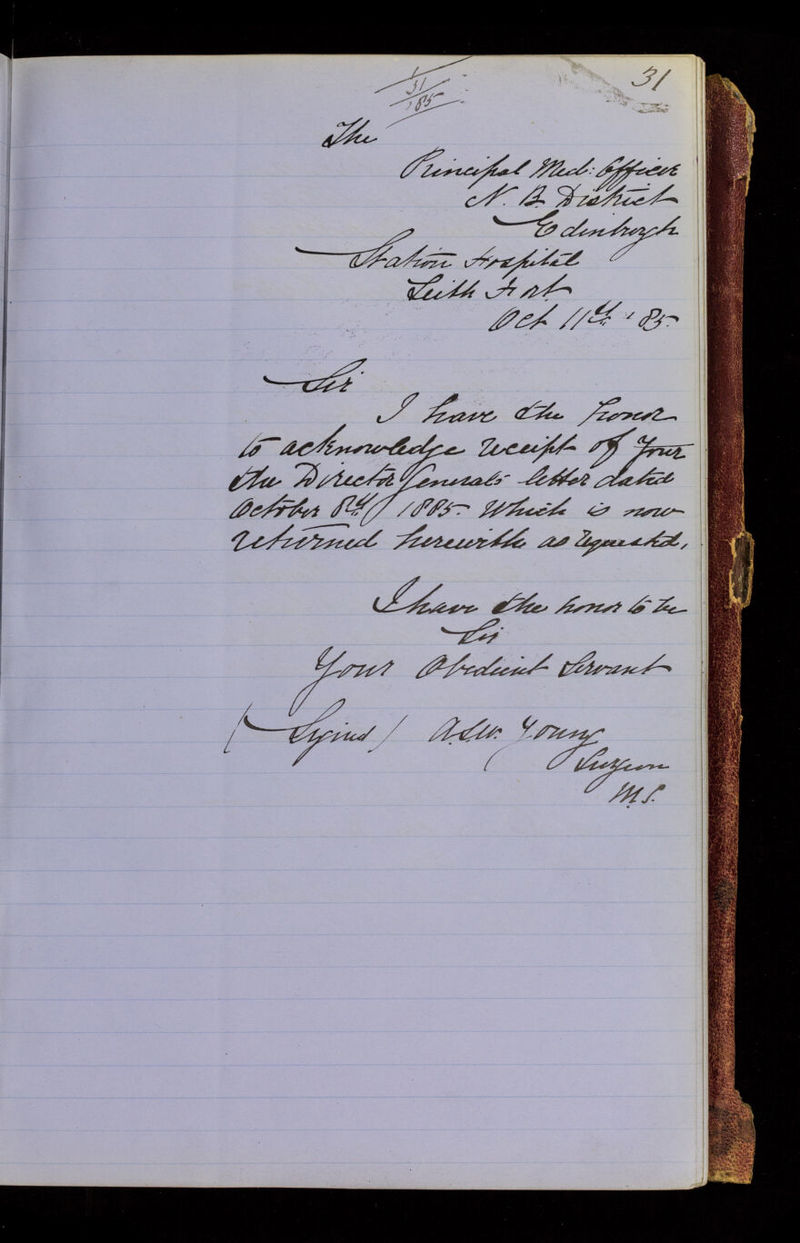 31
31/85
The
Principal Med: Officer
N. B. District
Edinburgh
Station Hospital
Leith Fort
Oct 11th '85.
Sir
I have the honor
to acknowledge receipt of your
the Director Generals letter dated
October 8th 1885. Which is now
returned herewith as requested,
I have the honor to be
Sir
Your Obedient Servant
(Signed) A.S.W. Young
Surgeon
M.S.